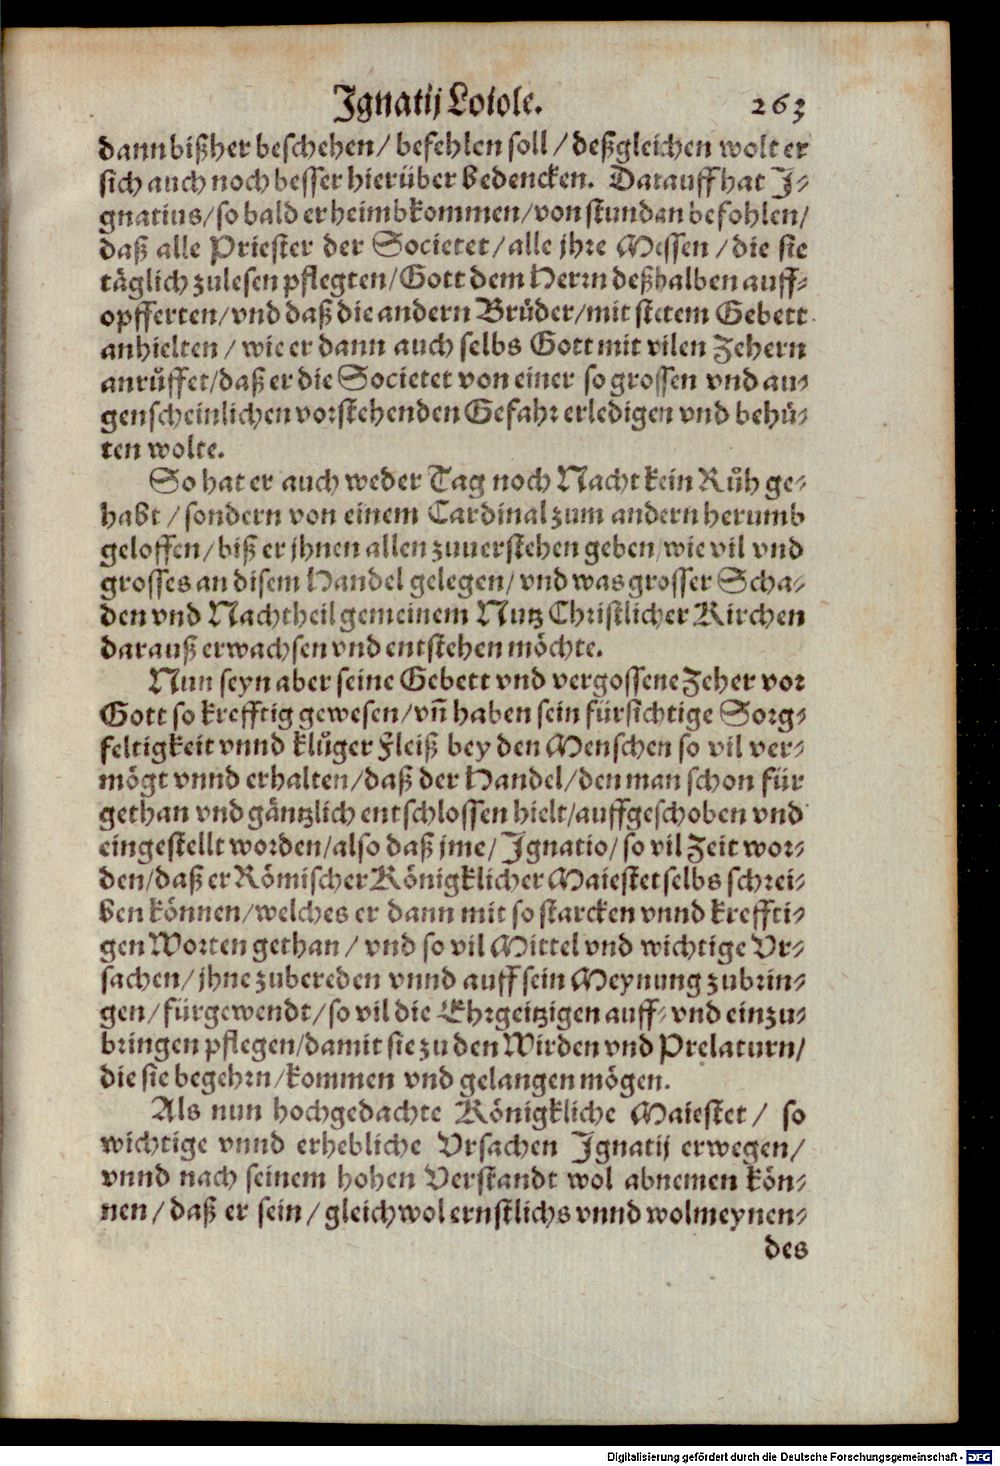 Ignatij Loiole. 263
dann bißher beschehen/ befehlen soll/ deßgleichen wolt er
sich auch noch besser hierüber bedencken. Darauff hat I-
gnatius/ so bald er heimbkommen/ von stund an befohlen/
daß alle Priester der Societet/ alle jhre Messen/ die sie
täglich zulesen pflegten/ Gott dem Herrn deßhalben auff-
opfferten/ vnd daß die andern Brůder/ mit stetem Gebett
anhielten/ wie er dann auch selbs Gott mit vilen Zehern
anrůffet/ daß er die Societet von einer so grossen vnd au-
genscheinlichen vorstehenden Gefahr erledigen vnd behů-
ten wolte.
So hat er auch weder Tag noch Nacht kein Růh ge-
habt/ sondern von einem Cardinal zum andern herumb
geloffen/ biß er jhnen allen zuuerstehen geben wie vil vnd
grosses an disem Handel gelegen/ vnd was grosser Scha-
den vnd Nachtheil gemeinem Nutz Christlicher Kirchen
darauß erwachsen vnd entstehen möchte.
Nun seyn aber seine Gebett vnd vergossene Zeher vor
Gott so krefftig gewesen/ vñ haben sein fürsichtige Sorg-
feltigkeit vnnd klůger Fleiß bey den Menschen so vil ver-
mögt vnnd erhalten/ daß der Handel/ den man schon für
gethan vnd gäntzlich entschlossen hielt/ auffgeschoben vnd
eingestellt worden/ also daß jme/ Ignatio/ so vil Zeit wor-
den/ daß er Römischer Königklicher Maiestet selbs schrei-
ben können/ welches er dann mit so starcken vnnd kreffti-
gen Worten gethan/ vnd so vil Mittel vnd wichtige Vr-
sachen/ jhne zubereden vnnd auff sein Meynung zubrin-
gen/ fürgewendt/ so vil die Ehrgeitzigen auff- vnd einzu-
bringen pflegen/ damit sie zu den Wirden vnd Prelaturn/
die sie begehrn/ kommen vnd gelangen mögen.
Als nun hochgedachte Königkliche Maiestet/ so
wichtige vnnd erhebliche Vrsachen Ignatij erwegen/
vnnd nach seinem hohen Verstandt wol abnemen kön-
nen/ daß er sein/ gleichwol ernstlichs vnnd wolmeynen-
des
Digitalisierung gefördert durch die Deutsche Forschungsgemeinschaft - DFG